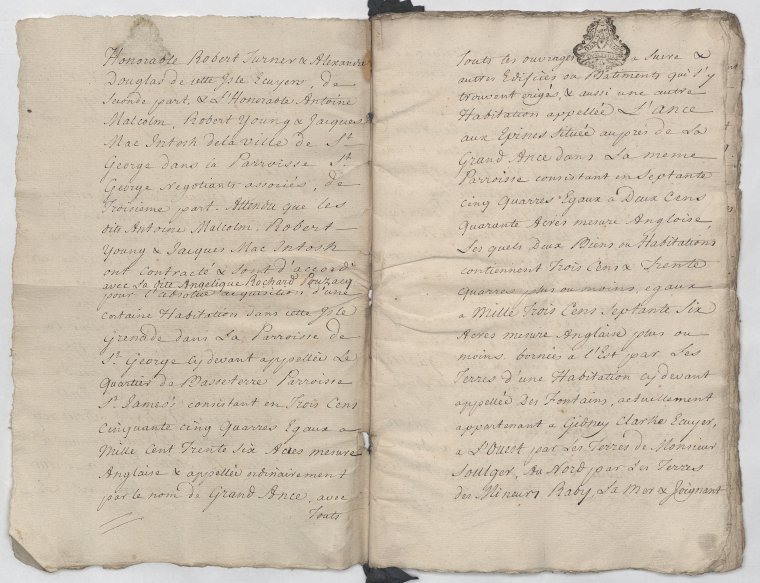 Honorable Robert Turner & Alexandre
Douglas de cette Isle Ecuyers, de
Seconde part, & L'Honorable Antoine
Malcolm, Robert Young & Jacques
Mac Intosh de la ville de St
George dans la Parroisse St
George Negotiants associés, de
Troisieme part. Attendu que les
dits Antoine Malcolm, Robert
Young & Jacques Mac Intosh
ont contracté & sont d'accord
avec La dte Angelique Rochard Pouzacq
pour l'absolue acquisition d'une
certaine Habitation dans cette Isle
Grenade dans La Parroisse de
St George cy devant appellée Le
Quartier da Basseterre Parroisse
St James's consistant en Trois Cens
Cinquante cinq Quarres Egaux a
Mille Cent Trente Six Acres mesure
Anglaise & appellée ordinairement
par le nom de Grand Ance, avec
Touts
Touts les ouvrages a Sucre &
autres Edifices ou Batiments qui s'y
trouvent erigés, & aussi une autre
Habitation appellée L'Ance
aux Epines située au près de La
Grand Ance dans La meme
Parroisse consistant en Septante
Cinq Quarres Egaux a Deux Cens
Quarante Acres mesure Angloise,
Les quels Deux Biens ou Habitations
contiennent Trois Cens & Trente
Quarres plus ou moins, egaux
a Mille Trois Cens Septante Six
Acres mesure Anglaise plus ou
moins, bornée à l'Est par Les
Terres d'une Habitation cy devant
appellée Des Fontains, actuellement
appartenant a Gibney Clarke Ecuyer,
a L'Ouest par Les Terres de Monsieur
Soulger, Au Nord par Les Terres
des Mineurs Raby, La Mer & Joignant